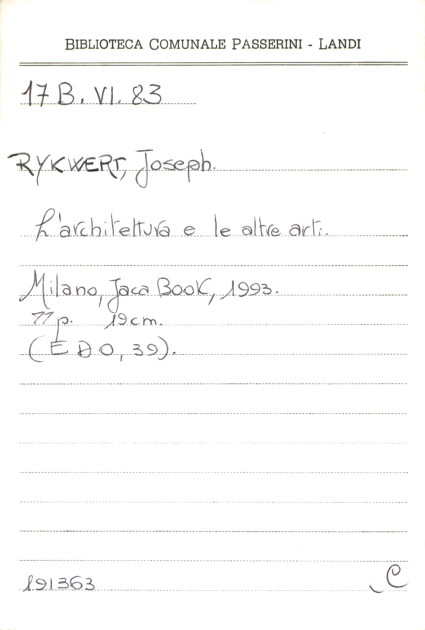 BIBLIOTECA COMUNALE PASSERINI - LANDI
17 B. VI. 83
RYKWERT, Joseph.
L'architettura e le altre arti.
Milano, Jaca Book, 1993.
77 p. 19 cm.
(EDO, 39).
191363
C